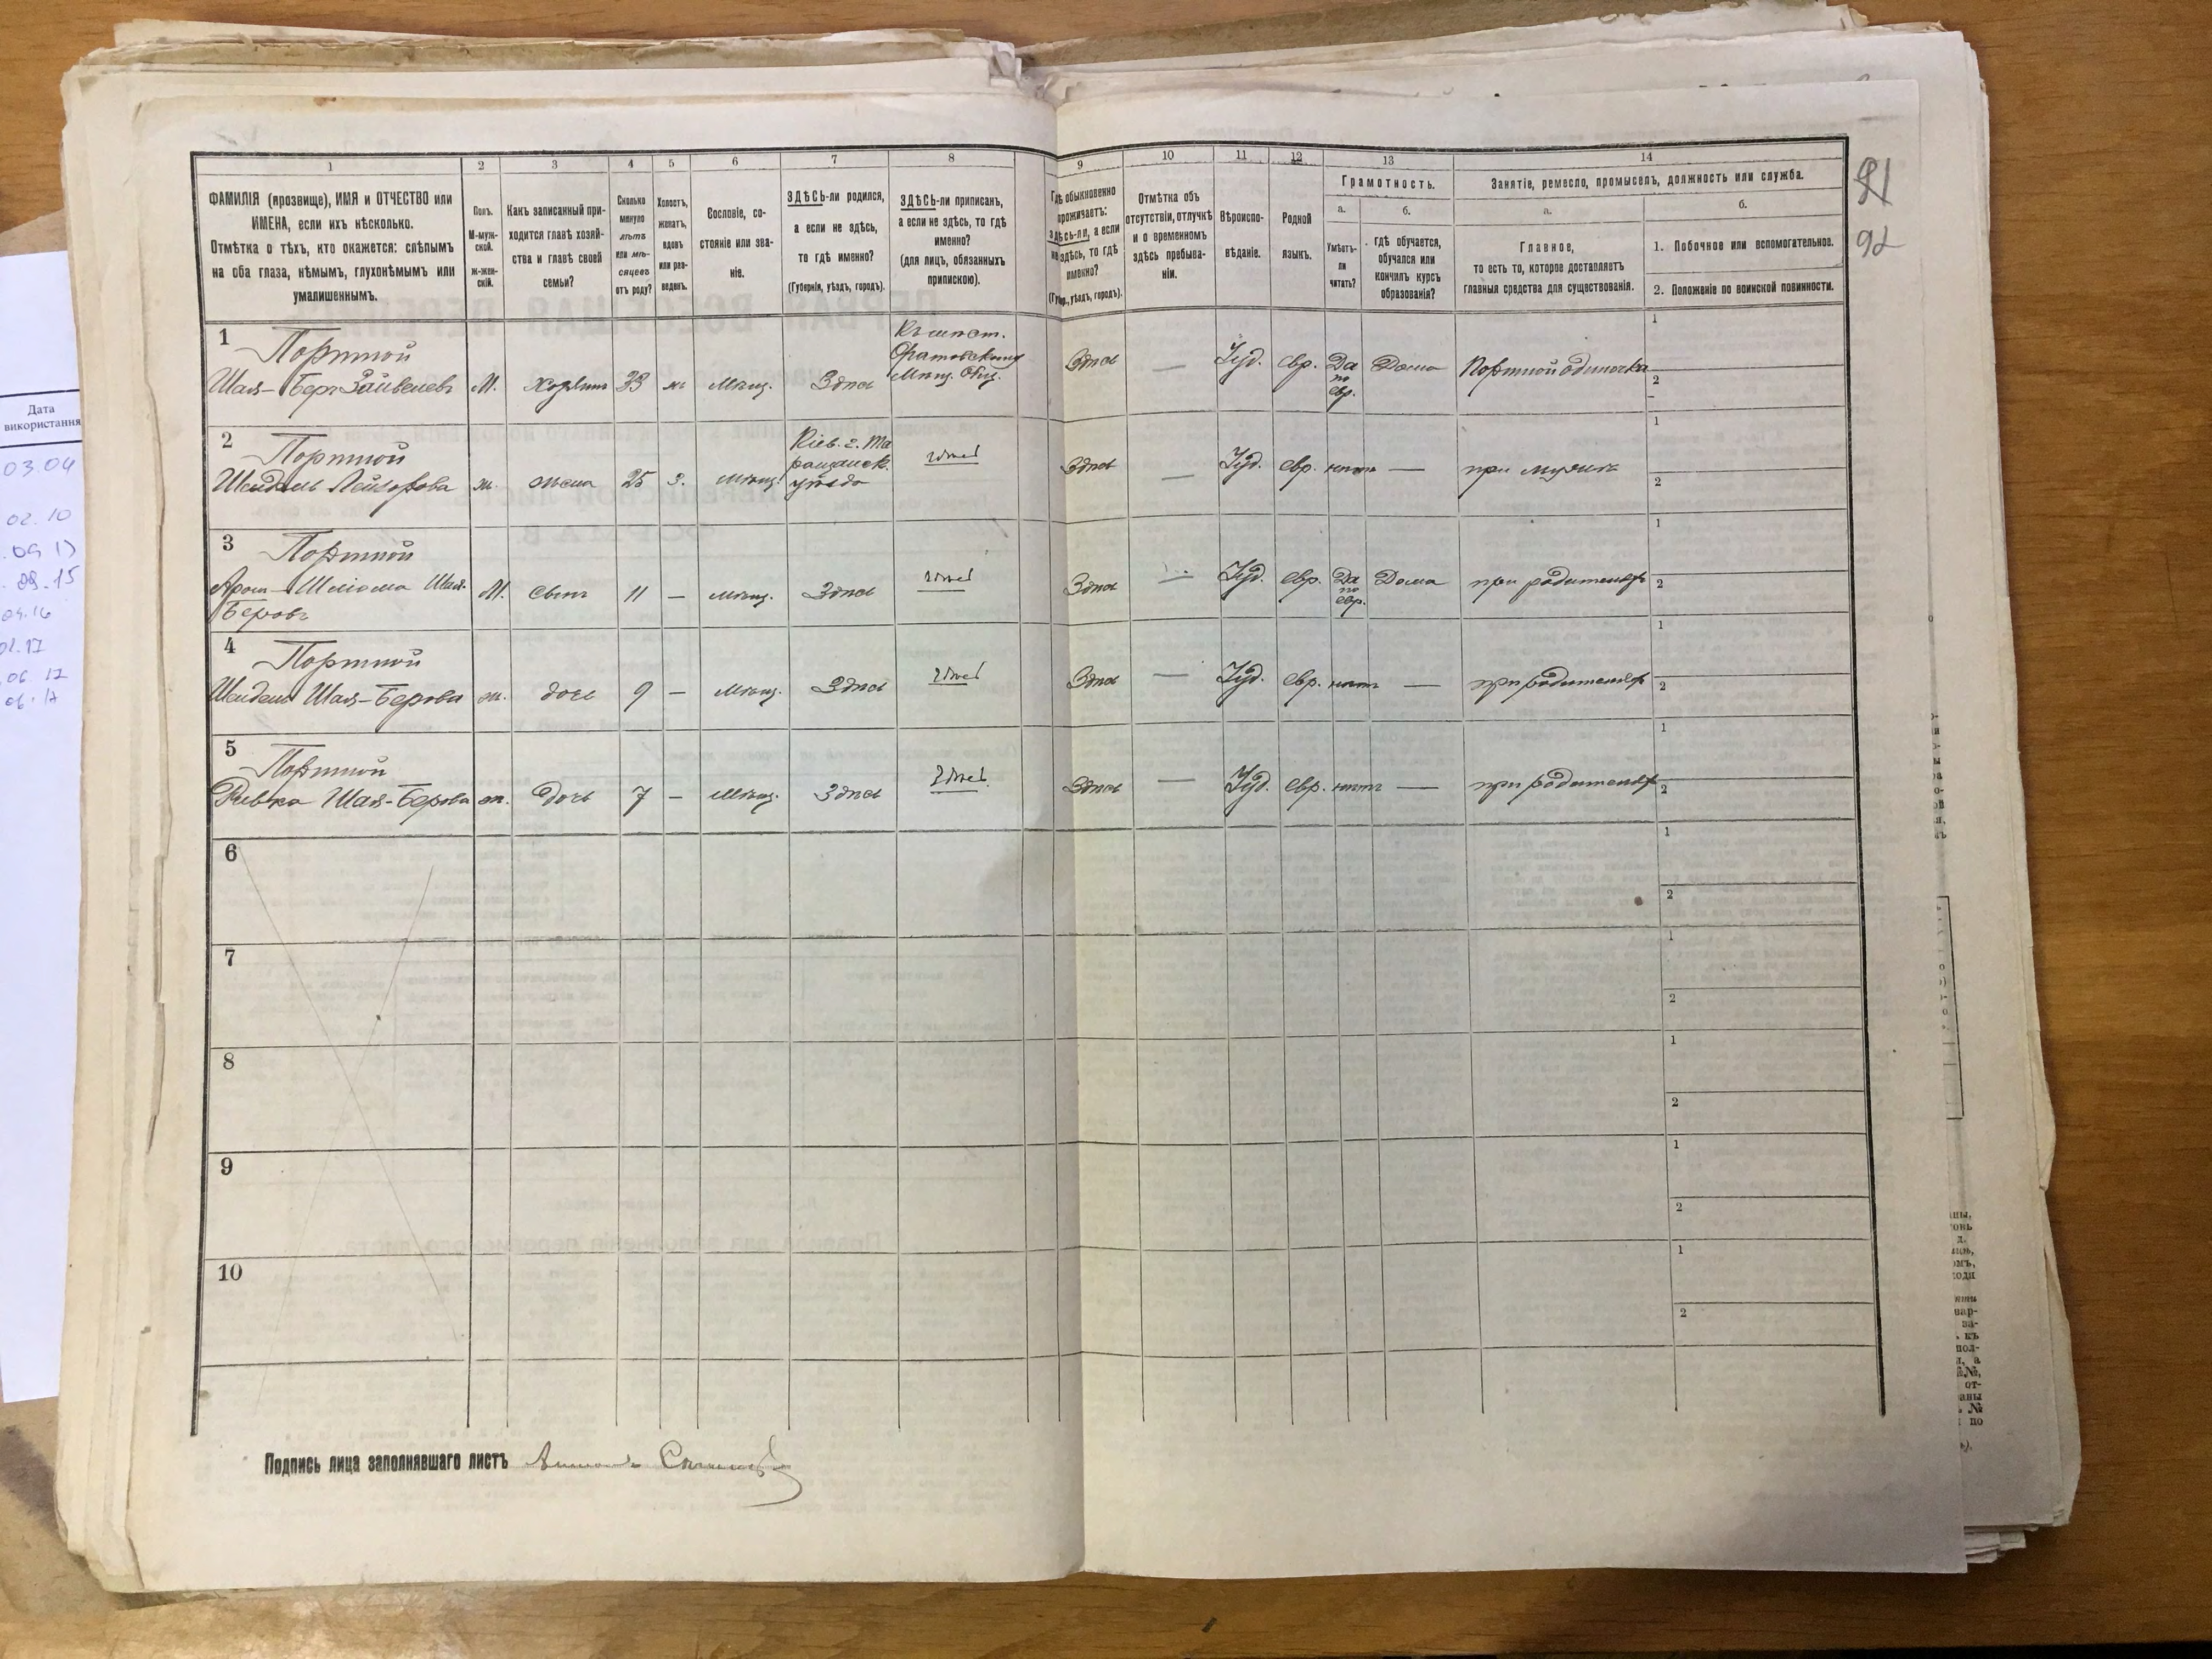 1
2
3
4
5
6
7
8
9
10
11
12
13
14
ФАМИЛІЯ (прозвище), ИМЯ и ОТЧЕСТВО или
ИМЕНА, если ихъ нѣсколько.
Отмѣтка о тѣхъ, кто окажется: слѣпымъ
на оба глаза, нѣмымъ, глухонѣмымъ или
умалишеннымъ.
Полъ.
М-муж-
ской.
ж-жен-
скій.
Какъ записанный при-
ходится главѣ хозяй-
ства и главѣ своей
семьи?
Сколько
минуло
лѣтъ
или мѣ-
сяцевъ
отъ роду?
Холостъ,
женатъ,
вдовъ
или раз-
веденъ.
Сословіе, со-
стояніе или зва-
ніе.
ЗДѢСЬ-ли родился,
а если не здѣсь,
то гдѣ именно?
(Губернія, уѣздъ, городъ).
ЗДѢСЬ-ли приписанъ,
а если не здѣсь, то гдѣ
именно?
(для лицъ, обязанныхъ
припискою).
Гдѣ обыкновенно
проживаетъ:
здѣсь-ли, а если
не здѣсь, то гдѣ
именно?
(Губ., уѣздъ, городъ).
Отмѣтка объ
отсутствіи, отлучкѣ
и о временномъ
здѣсь пребыва-
ніи.
Вѣроиспо-
вѣданіе.
Родной
языкъ.
Грамотность.
а.
Умѣетъ-
ли
читать?
б.
гдѣ обучается,
обучался или
кончилъ курсъ
образованія?
Занятіе, ремесло, промыселъ, должность или служба.
а.
Главное,
то есть то, которое доставляетъ
главныя средства для существованія.
б.
1. Побочное или вспомогательное.
2. Положеніе по воинской повинности.
91
92
1
Портной
Шая-Беръ Зайвелевъ
М.
Хозяинъ
33
ж
Мѣщ.
Здѣсь
Мѣщ. Общ.
Здѣсь
—
Іуд.
евр.
Да
по
евр.
Дома
Портной одиночка
1
2
2
Портной
Шейдель Лейзорова
ж.
жена
25
з.
Мѣщ.
Кіев. г. Та
ращанск.
уѣзда
здѣсь
—
Іуд.
евр.
нѣтъ
—
при мужѣ
1
2
3
Портной
Арон-Шліома Шая-
Беровъ
М.
сынъ
11
—
мѣщ.
Здѣсь
Здѣсь
Іуд.
евр.
Да
по
евр.
Дома
при родителяхъ
1
2
4
Портной
Шейдель Шая-Берова
ж.
дочь
9
—
Мѣщ.
Здѣсь
Здѣсь
—
Іуд.
евр.
нѣтъ
—
при родителяхъ
1
2
5
Портной
Ривка Шая-Берова
ж.
дочь
7
—
Мѣщ.
Здѣсь
Здѣсь
—
Іуд.
евр.
нѣтъ
—
при родителяхъ
1
2
6
1
2
7
1
2
8
1
2
9
1
2
10
1
2
Подпись лица заполнявшаго листъ
Дата
використання
03.04
02.10
09.15
04.16
01.17
06.17
06.17